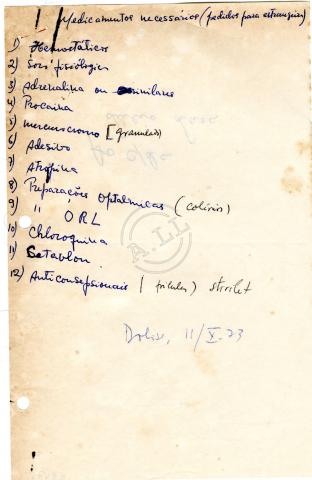 Medicamentos necessários (pedidos para estrangeiro)
1) Hemostáticos
2) Soro fisiológico
3) Adrenalina ou similares
4) Procaína
5) mercurocromo [granulado]
6) Adesivo
7) Atropina
8) Preparações Oftalmicas (colírios)
9) " " ORL
10) Chloroquina
11) Setavlon
12) Anticonsepsionais ( pílulas) sterilet
Dolisie, 11/X.73
A.LL